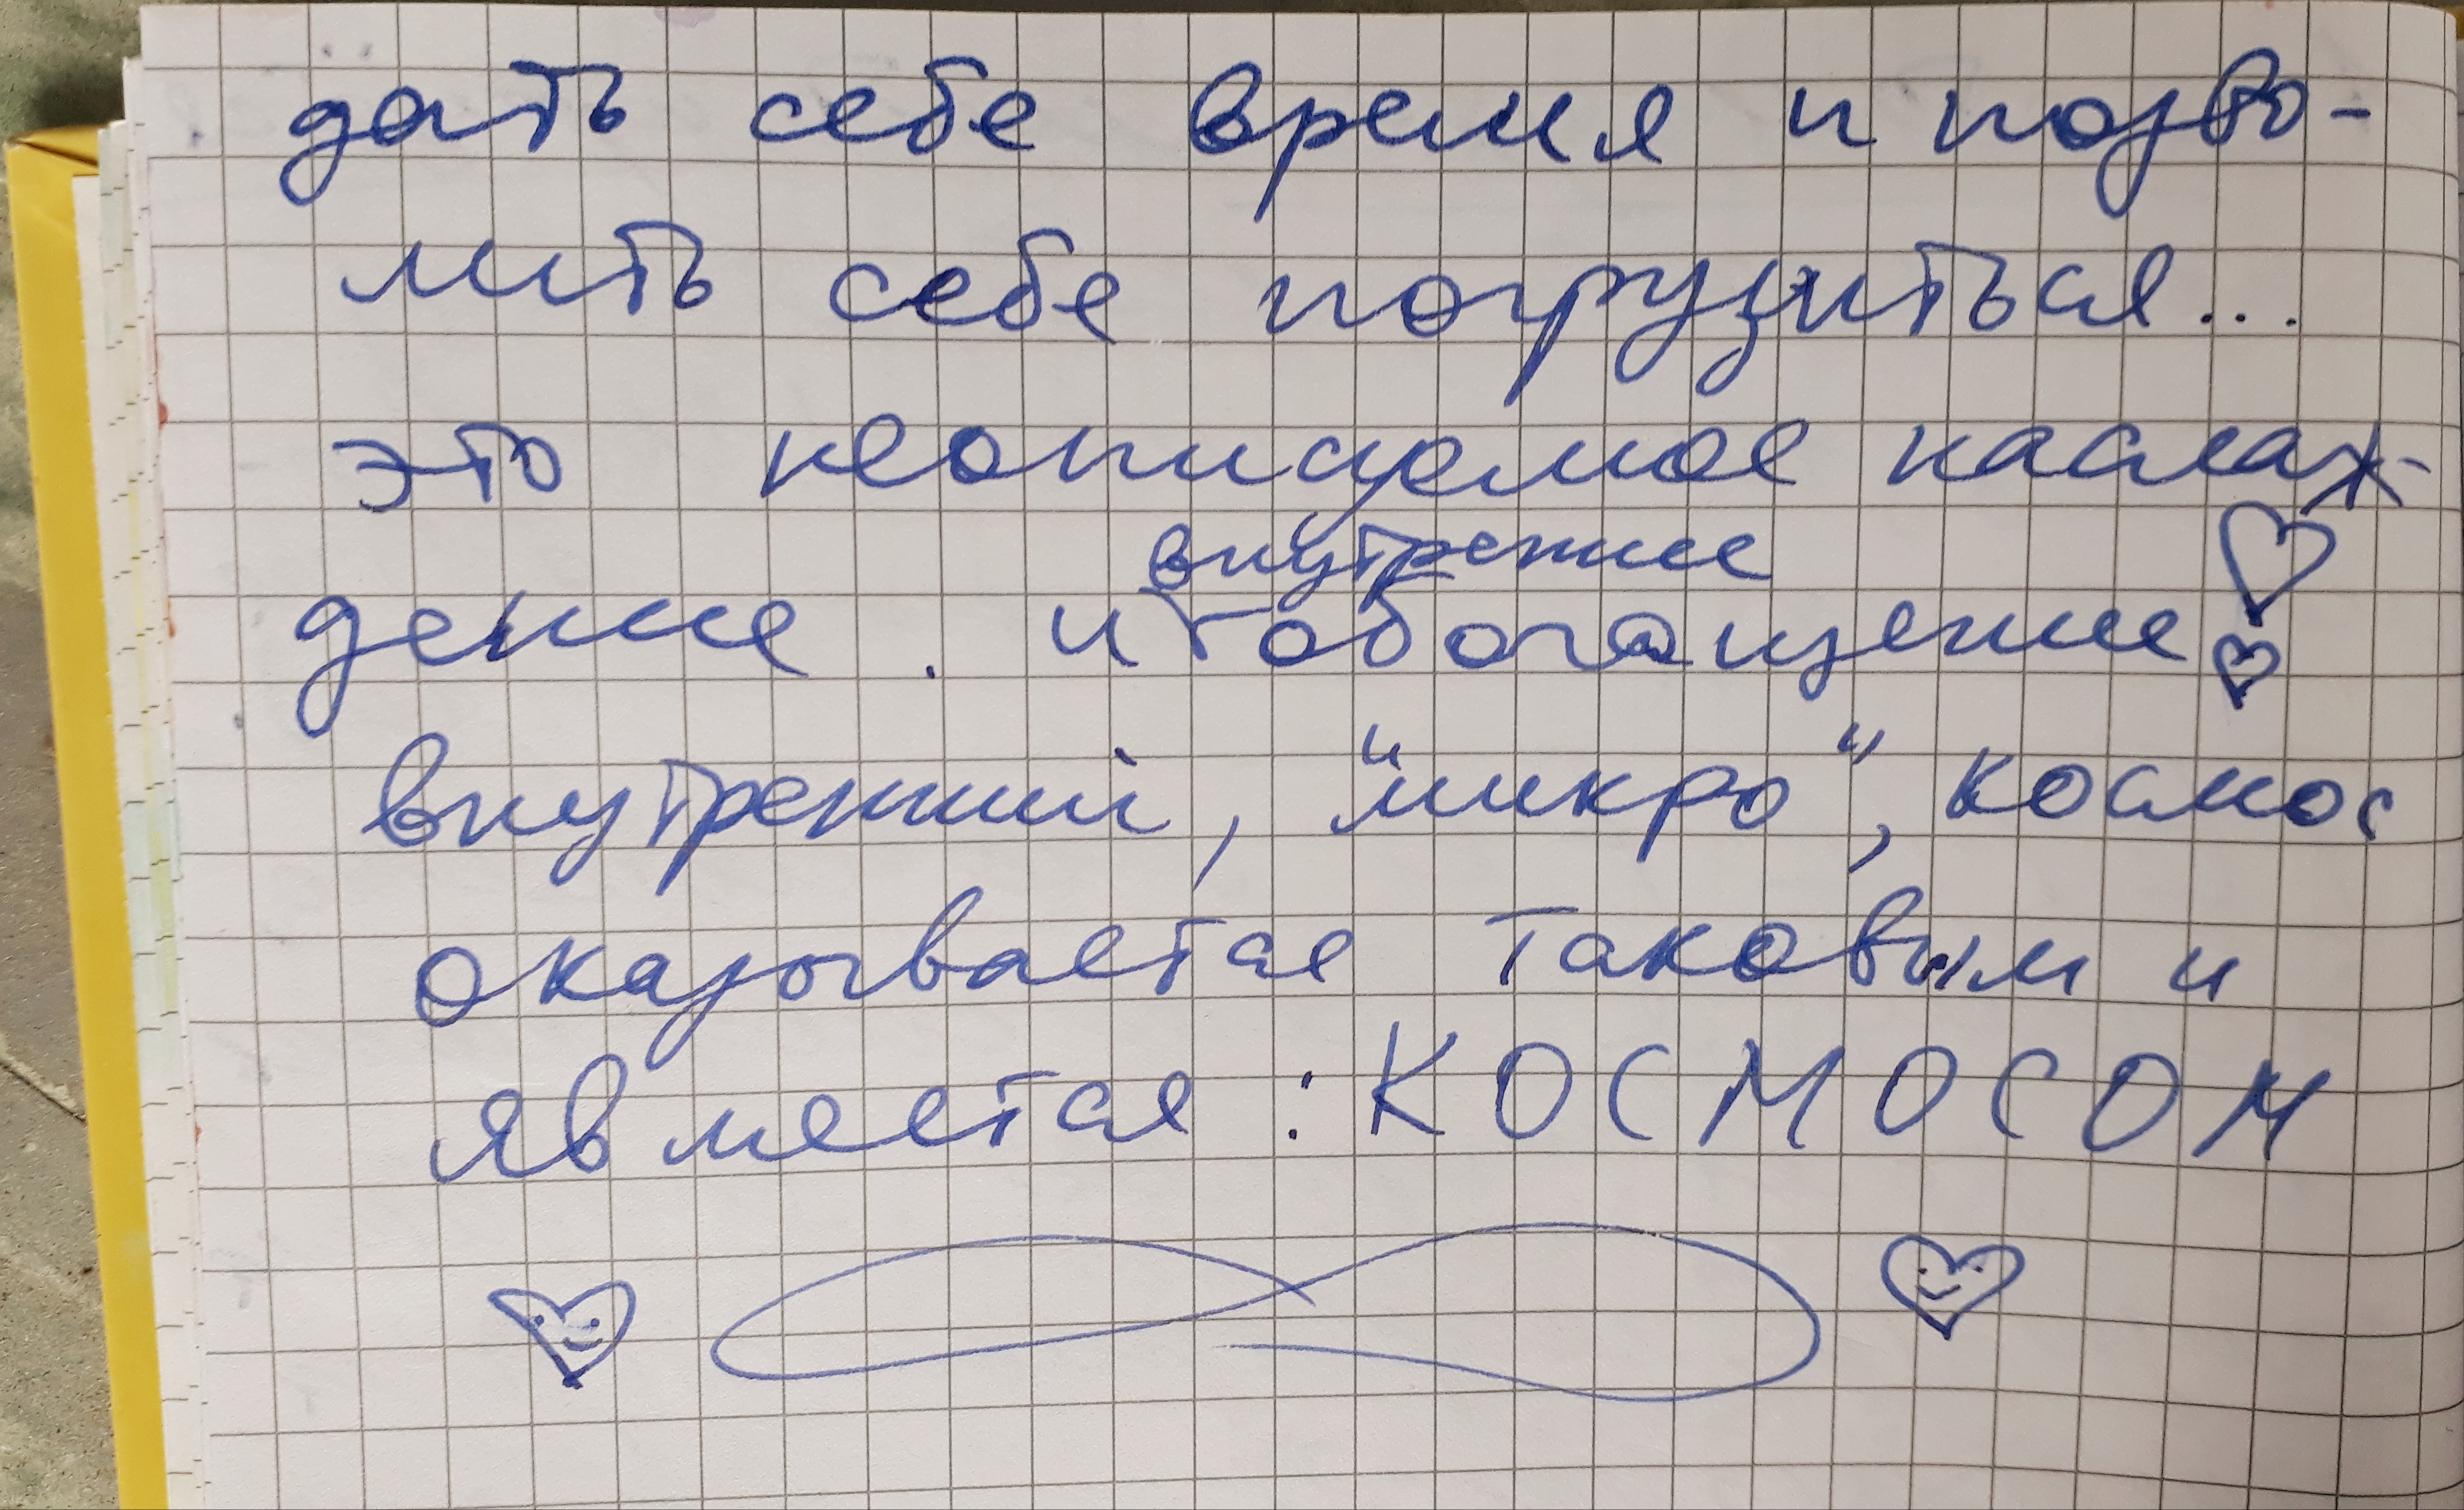 дать себе время и позво-
лить себе погрузиться...
это неописуемое наслаж-
дение. и внутреннее обогащение
внутренний, "микро", космос
оказывается таковым и
является: КОСМОСОМ